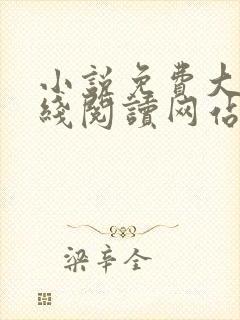 小說免費大
綫閱讀网佔
梁辛全